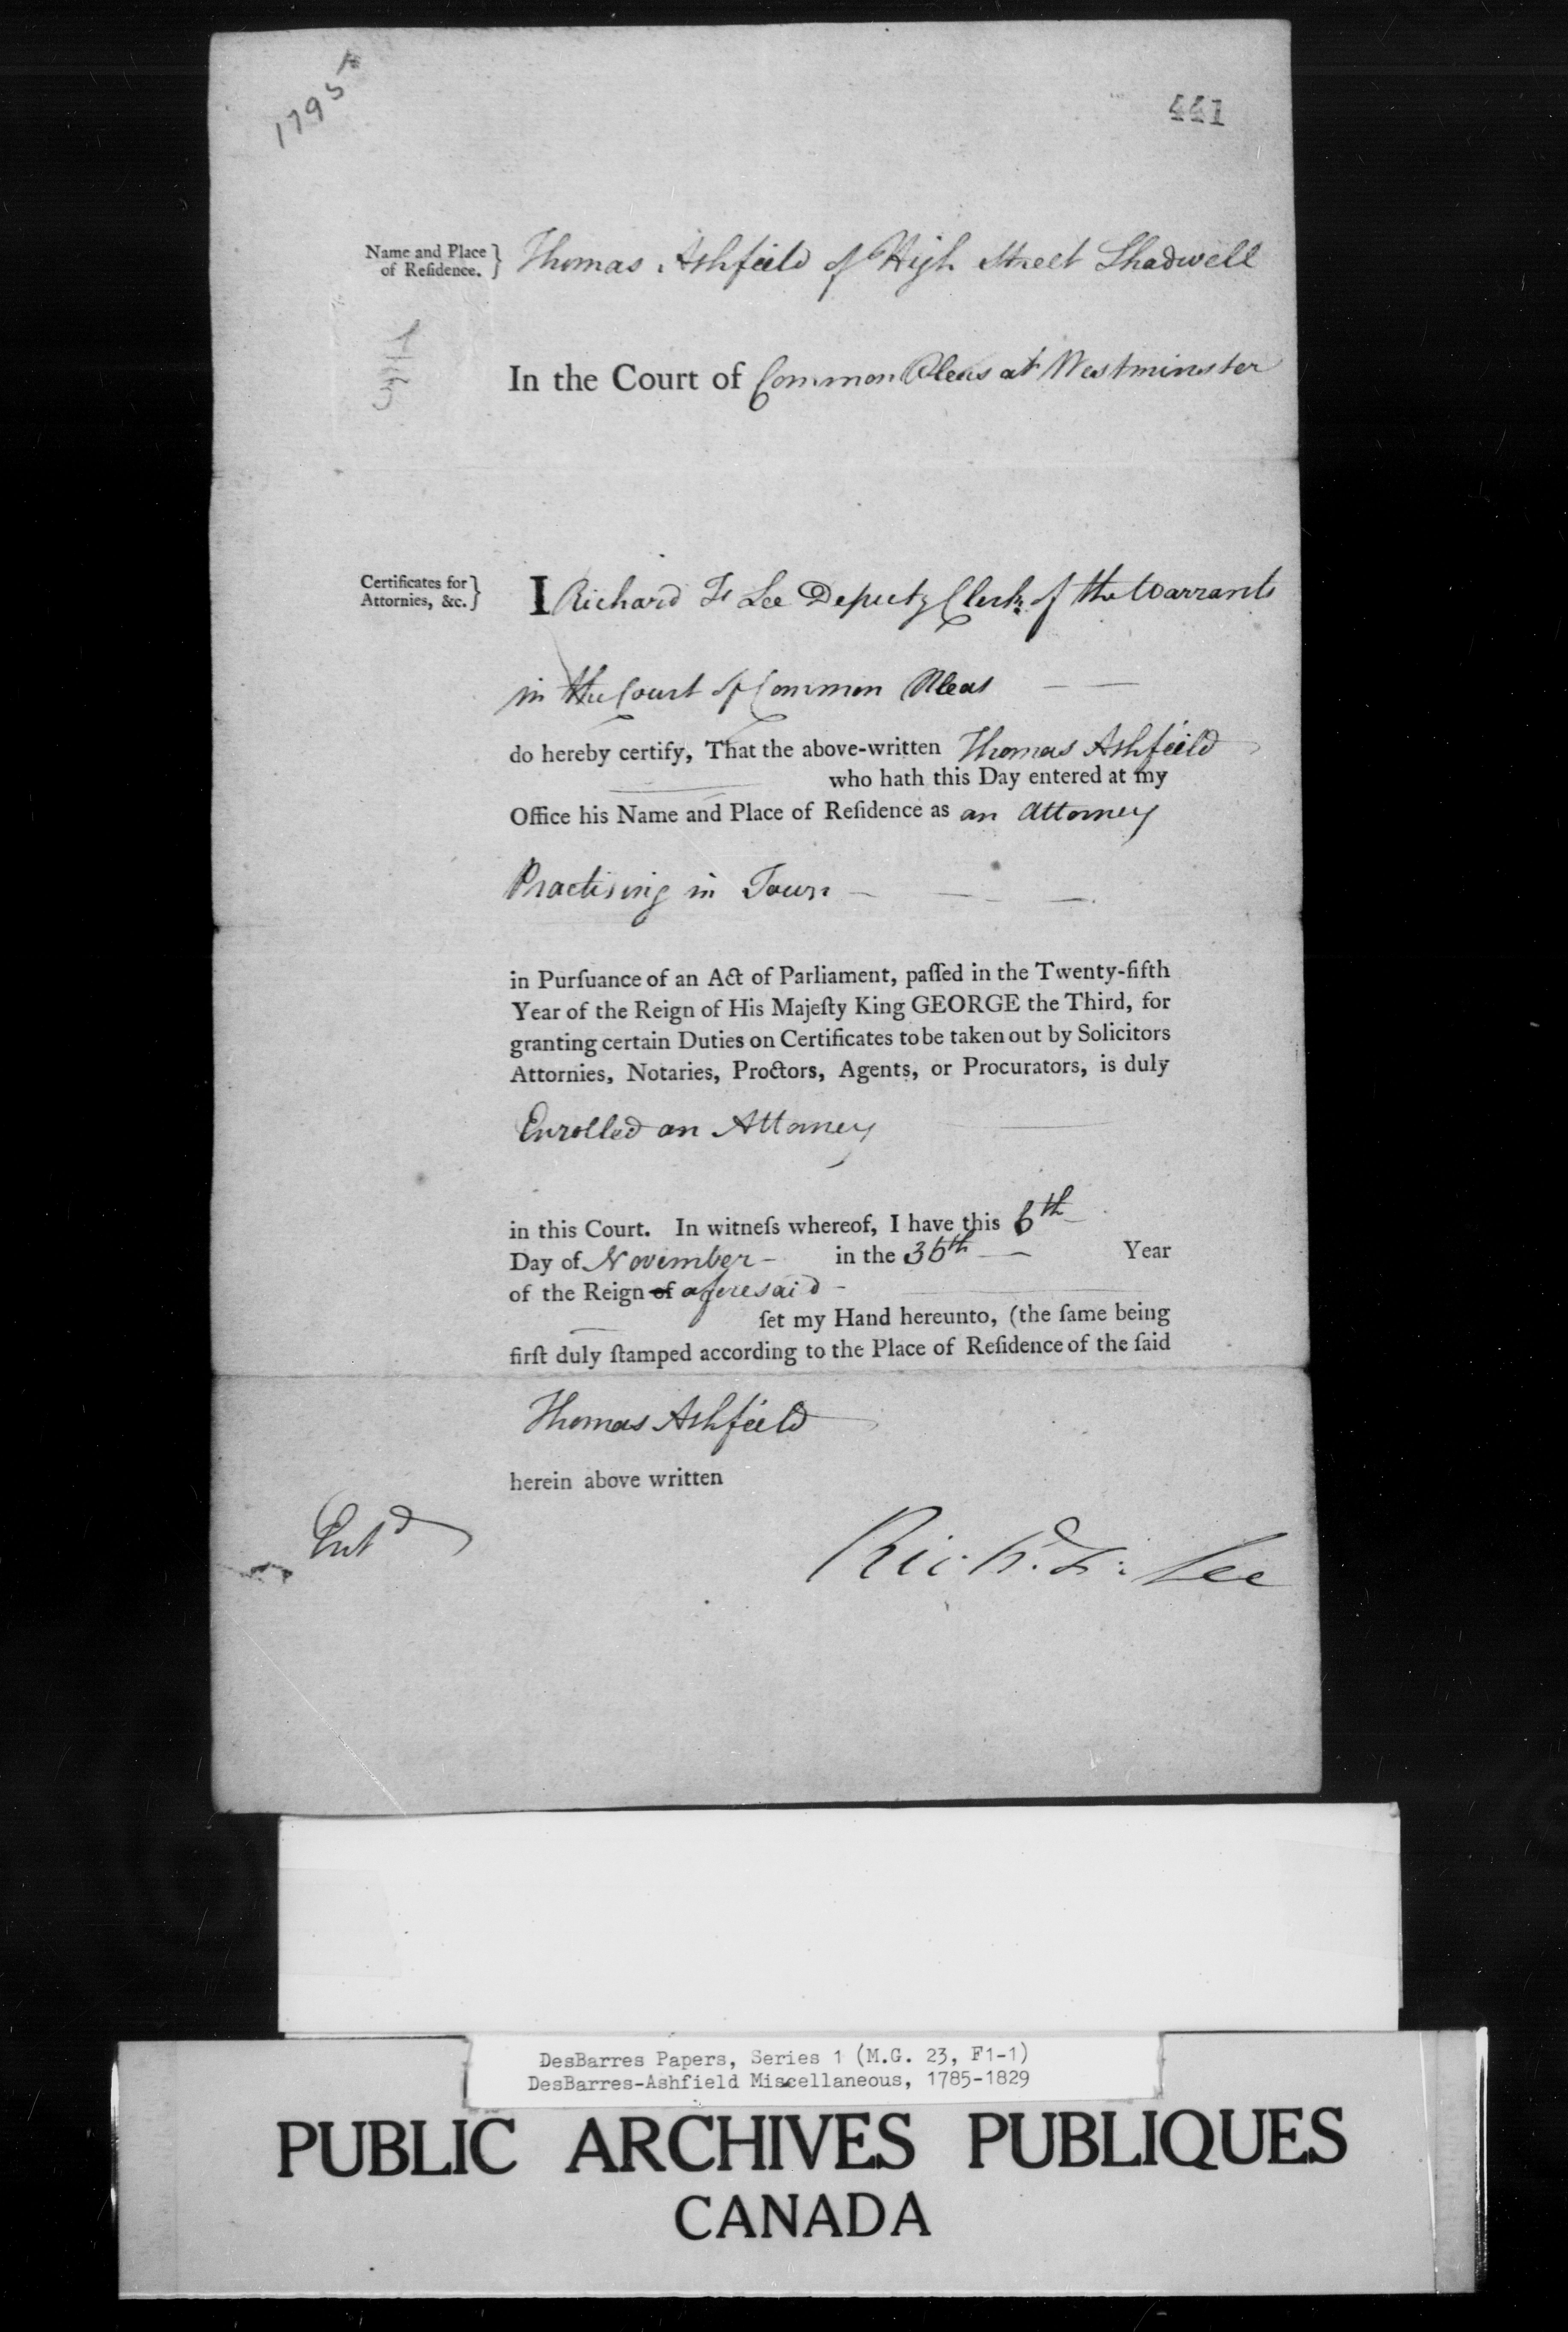 1795
441
Name and Place
of Reſidence. } Thomas Ashfield of High Street Shadwell
In the Court of Common Pleas at Westminster
Certificates for
Attornies, &c. } I Richard Fs Lee Deputy Clerk of the Warrants
in the Court of Common Pleas
do hereby certify, That the above-written Thomas Ashfield
who hath this Day entered at my
Office his Name and Place of Reſidence as an Attorney
Practising in Town
in Purſuance of an Act of Parliament, paſſed in the Twenty-fifth
Year of the Reign of His Majeſty King GEORGE the Third, for
granting certain Duties on Certificates to be taken out by Solicitors
Attornies, Notaries, Proctors, Agents, or Procurators, is duly
Enrolled an Attorney
in this Court. In witneſs whereof, I have this 6th
Day of November - in the 36th Year
of the Reign of aforesaid -
ſet my Hand hereunto, (the ſame being
firſt duly ſtamped according to the Place of Reſidence of the ſaid
Thomas Ashfield
herein above written
Entd
Richd. Fs: Lee
DesBarres Papers, Series 1 (M.G. 23, F1-1)
DesBarres-Ashfield Miscellaneous, 1785-1829
PUBLIC ARCHIVES PUBLIQUES
CANADA